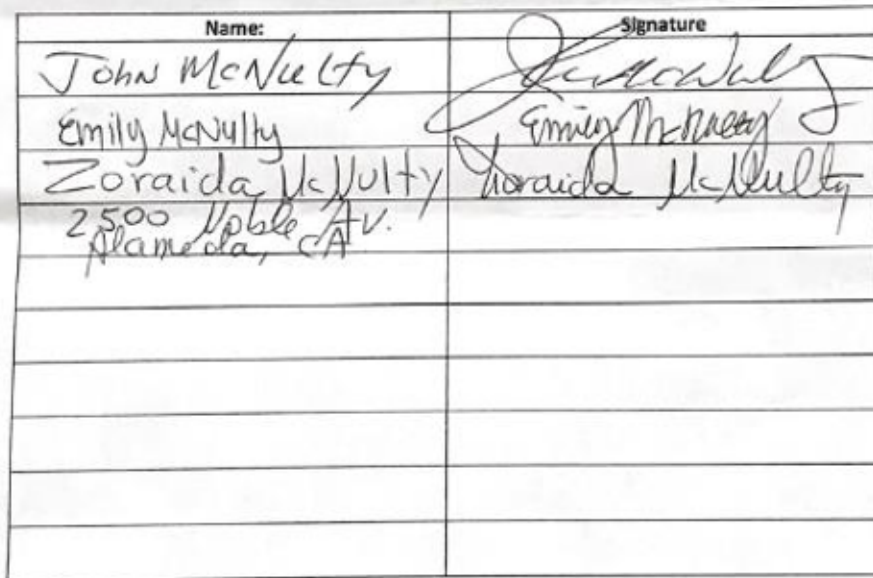 Name: Signature
John McNulty John McNulty
Emily McNulty Emily McNulty
Zoraida McNulty Zoraida McNulty
2500 Noble Av.
Alameda, CA